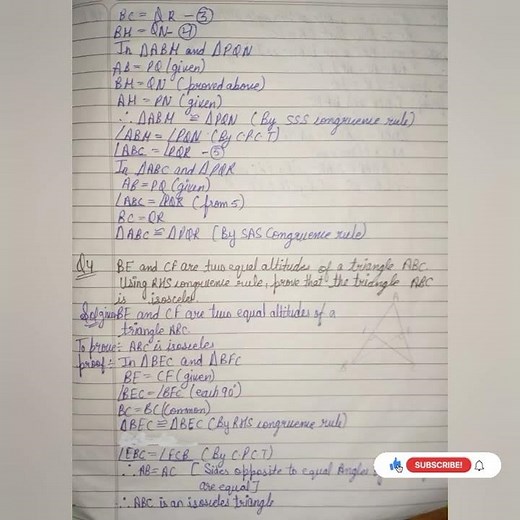 BC = QR — ③
BM = QN — ④
In ΔABM and ΔPQN
AB = PQ (given)
BM = QN (proved above)
AM = PN (given)
∴ ΔABM ≅ ΔPQN (By SSS congruence rule)
∠ABM = ∠PQN (By C.P.C.T)
∠ABC = ∠PQR — ⑤
In ΔABC and ΔPQR
AB = PQ (given)
∠ABC = ∠PQR (from 5)
BC = QR
ΔABC ≅ ΔPQR (By SAS Congruence rule)
Q4 BE and CF are two equal altitudes of a triangle ABC.
Using RHS congruence rule, prove that the triangle ABC
is isosceles.
Sol given BE and CF are two equal altitudes of a
triangle ABC
To prove:- ABC is isosceles
proof:- In ΔBEC and ΔBFC
BE = CF (given)
∠BEC = ∠BFC (each 90°)
BC = BC (common)
ΔBEC ≅ ΔBEC (By RHS congruence rule)
∠EBC = ∠FCB (By C.P.C.T)
∴ AB = AC [Sides opposite to equal Angles
are equal]
∴ ABC is an isosceles triangle
SUBSCRIBE!